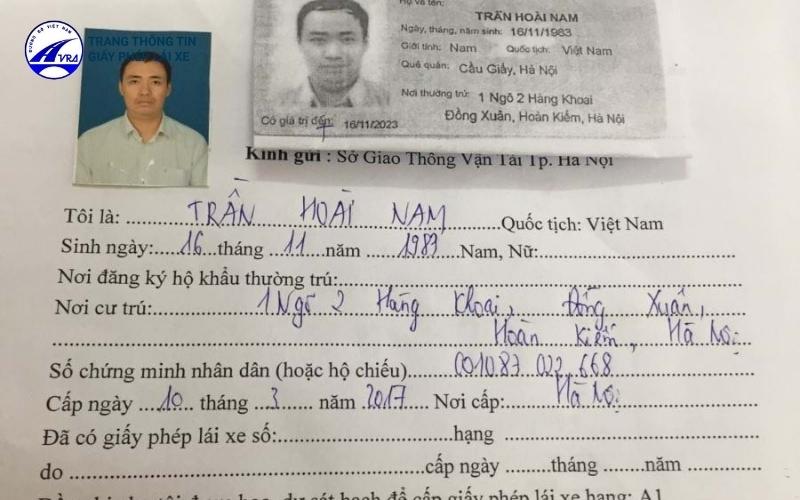 Họ và tên:
TRẦN HOÀI NAM
Ngày, tháng, năm sinh: 16/11/1983
Giới tính: Nam Quốc tịch: Việt Nam
Quê quán: Cầu Giấy, Hà Nội
Nơi thường trú: 1 Ngõ 2 Hàng Khoai
Đồng Xuân, Hoàn Kiếm, Hà Nội
Có giá trị đến: 16/11/2023
ĐƯỜNG BỘ VIỆT NAM
VRA
TRANG THÔNG TIN
GIẤY PHÉP LÁI XE
Kính gửi : Sở Giao Thông Vận Tải Tp. Hà Nội
Tôi là: TRẦN HOÀI NAM Quốc tịch: Việt Nam
Sinh ngày: 16 tháng 11 năm 1983 Nam, Nữ:
Nơi đăng ký hộ khẩu thường trú:
Nơi cư trú: 1 Ngõ 2 Hàng Khoai, Đồng Xuân,
Hoàn Kiếm, Hà Nội
Số chứng minh nhân dân (hoặc hộ chiếu) 001083 022 668
Cấp ngày 10 tháng 3 năm 2017 Nơi cấp: Hà Nội
Đã có giấy phép lái xe số: hạng
do cấp ngày tháng năm
học, dự sát hạch để cấp giấy phép lái xe hạng: A1